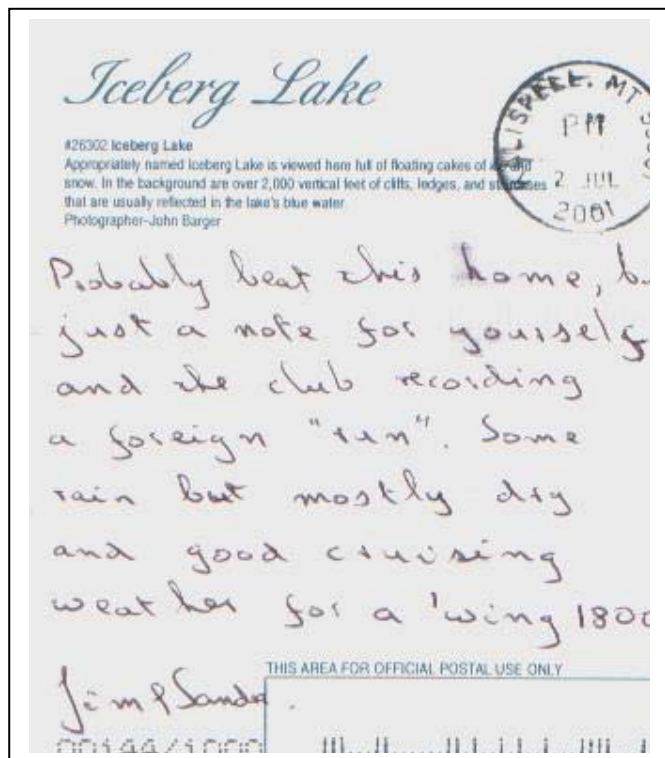 Iceberg Lake
#26302 Iceberg Lake
Appropriately named Iceberg Lake is viewed here full of floating cakes of ice and
snow. In the background are over 2,000 vertical feet of cliffs, ledges, and staircases
that are usually reflected in the lake's blue water
Photographer-John Barger
KALISPELL, MT
PM
2 JUL
2001
Probably beat this home, b
just a note for yourself
and the club recording
a foreign "run". Some
rain but mostly dry
and good cruising
weather for a 'wing 1800
THIS AREA FOR OFFICIAL POSTAL USE ONLY
Jim & Sandra.
00144/1000